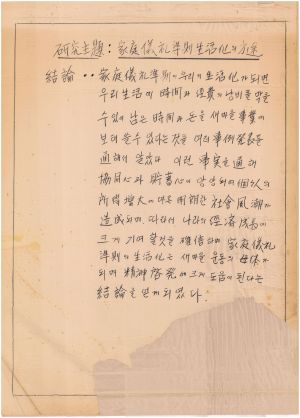 研究主題: 家庭儀礼準則 生活化의 方途
結論 ·· 家庭儀礼準則이 우리의 生活化가 되면
우리 生活에 時間과 経費의 낭비를 막을
수 있어 남는 時間과 돈을 새마을 事業에
보태 쓸 수 있다는 것을 여러 事例 発表를
通해서 알았다 이런 事実을 通해
協同心과 貯蓄心이 앙양되며 個人의
所得増大에 따른 明朗한 社會風潮가
造成되며, 따라서 나라의 経済成長에
크게 기여할것을 確信하며 家庭儀礼
準則의 生活化는 새마을 운동의 母体가
되며 精神啓発에 크게 도움이 된다는
結論을 얻게 되었다.